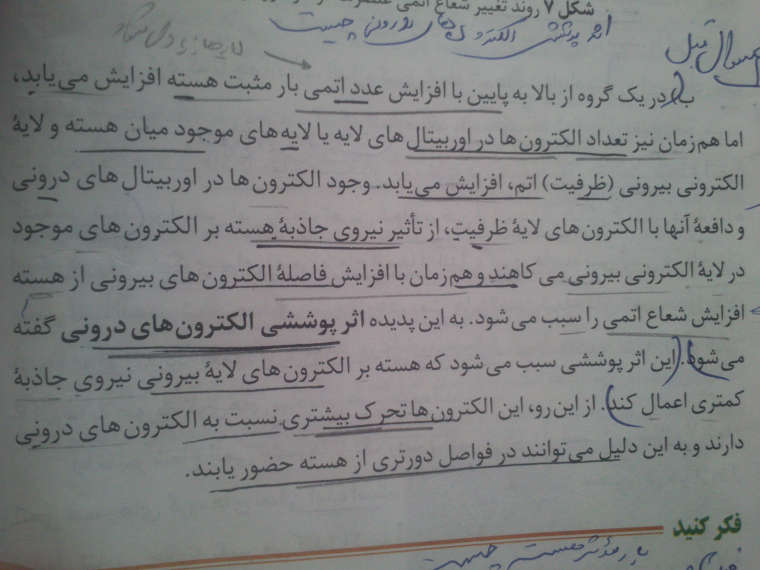 شکل ۷ روند تغییر شعاع اتمی
اثر پوششی الکترون‌های درونی چیست
سوال قبل
ب) در یک گروه از بالا به پایین با افزایش عدد اتمی بار مثبت هسته افزایش می‌یابد،
اما هم‌زمان نیز تعداد الکترون‌ها در اوربیتال‌های لایه یا لایه‌های موجود میان هسته و لایهٔ
الکترونی بیرونی (ظرفیت) اتم، افزایش می‌یابد. وجود الکترون‌ها در اوربیتال‌های درونی
و دافعهٔ آنها با الکترون‌های لایهٔ ظرفیت، از تأثیر نیروی جاذبهٔ هسته بر الکترون‌های موجود
در لایهٔ الکترونی بیرونی می‌کاهند و هم‌زمان با افزایش فاصلهٔ الکترون‌های بیرونی از هسته
افزایش شعاع اتمی را سبب می‌شود. به این پدیده اثر پوششی الکترون‌های درونی گفته
می‌شود. این اثر پوششی سبب می‌شود که هسته بر الکترون‌های لایهٔ بیرونی نیروی جاذبهٔ
کمتری اعمال کند. از این‌رو، این الکترون‌ها تحرک بیشتری نسبت به الکترون‌های درونی
دارند و به این دلیل می‌توانند در فواصل دورتری از هسته حضور یابند.
فکر کنید
بار مؤثر هسته چیست